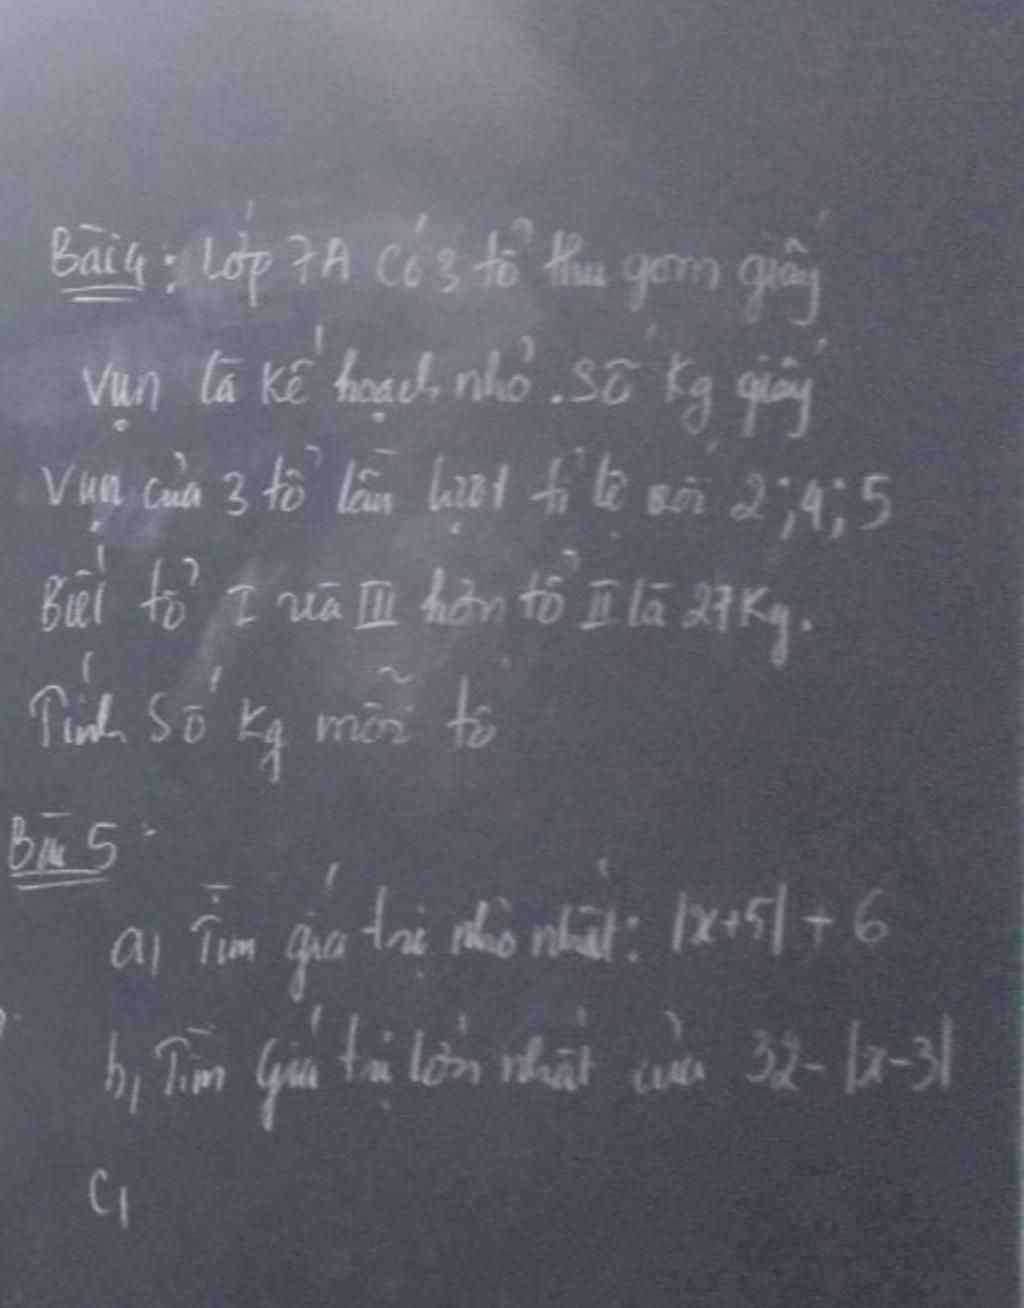 Bài 4: Lớp 7A Có 3 tổ thu gom giấy
vụn là Kế hoạch nhỏ. Số Kg giấy
vụn của 3 tổ lần lượt tỉ lệ với 2; 4; 5
Biết tổ I và III hơn tổ II là 27Kg.
Tính Số Kg mỗi tổ
Bài 5:
a, Tìm giá trị nhỏ nhất: |x+5| + 6
b, Tìm Giá trị lớn nhất của 32 - |x-3|
C,